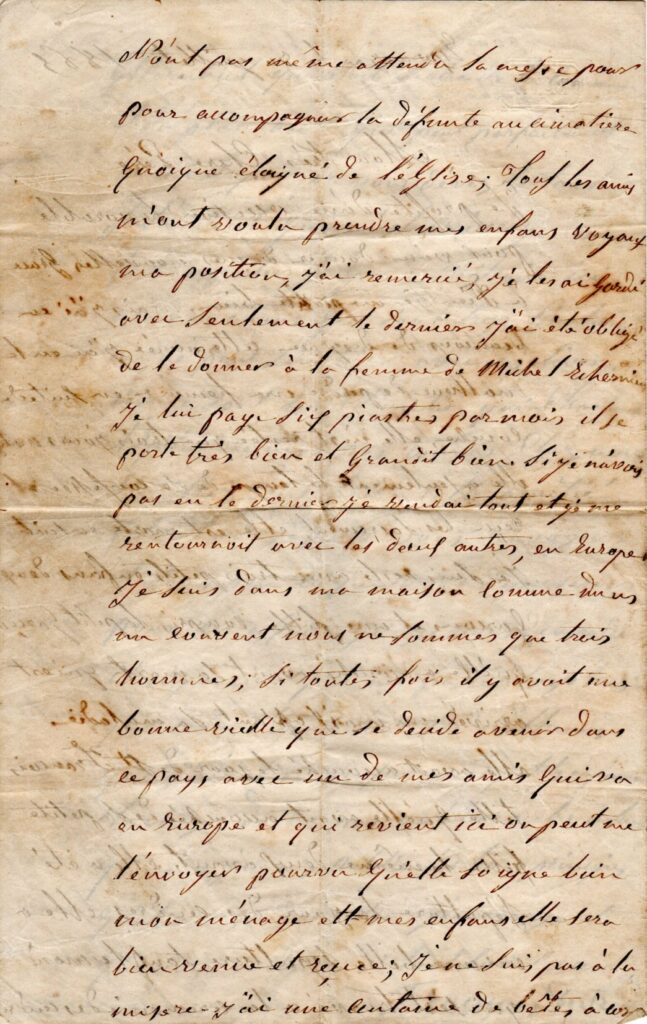 N'ont pas même attendu la messe pour
pour accompagner la défunte au cimatiere
Quoique éloigné de l'église; Tous les amis
m'ont voulu prendre mes enfans voyaux
ma position, j'ai remercié, je les ai Gardé
avec seulement le dernier j'ai été obligé
de le donner à la femme de Michel
Je lui paye Six piastres par mois il se
porte très bien et Grandit bien. Si je n'avois
pas eu le dernier je vendai tout et je me
rentournoit avec les deux autres, en Europe
Je suis dans ma maison Comme dans
un couvent nous ne sommes que trois
hommes; Si toutes fois il y avoit une
bonne vielle que se decide avenir dans
ce pays avec un de mes amis Qui va
en Europe et qui revient ici on peut me
l'envoyer pourvu Qu'elle soigne bien
mon ménage ett mes enfans elle sera
bien venue et reçue; Je ne suis pas à la
misere j'ai une centaine de bêtes à cor